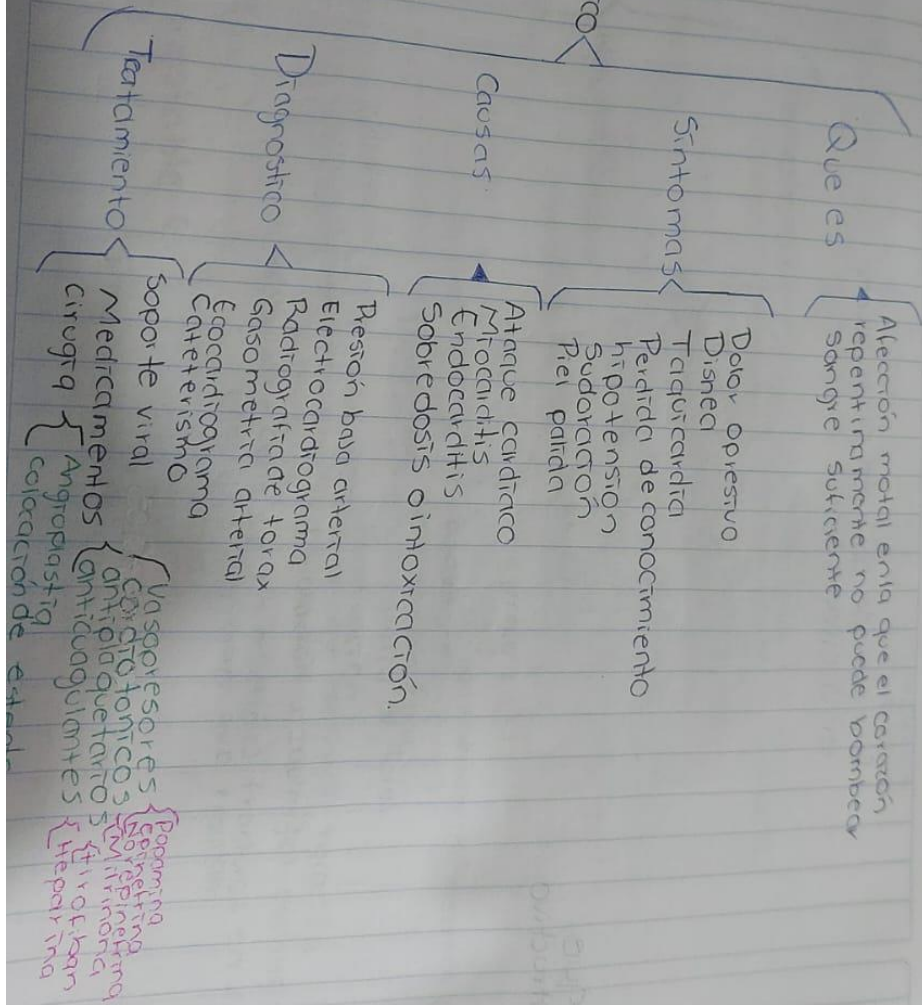 co
Que es
Afección motal enla que el corazón
repentinamente no puede bombear
sangre suficiente
Sintomas
Dolor opresivo
Disnea
Taquicardia
Perdida de conocimiento
hipotension
Sudoración
Piel palida
Causas
Ataque cardiaco
Miocarditis
Endocarditis
Sobredosis o intoxicación.
Diagnostico
Presión baja arterial
Electrocardiograma
Radiografia de torax
Gasometria arterial
Ecocardiograma
Cateterismo
Tratamiento
Soporte viral
Medicamentos
Vasopresores
Dopamina
Epinefrina
Norepinefrina
Cardiotonicos
Milrinona
antiplaquetarios
tirofiban
anticuagulantes
Heparina
Cirugia
Angioplastia
Colocación de